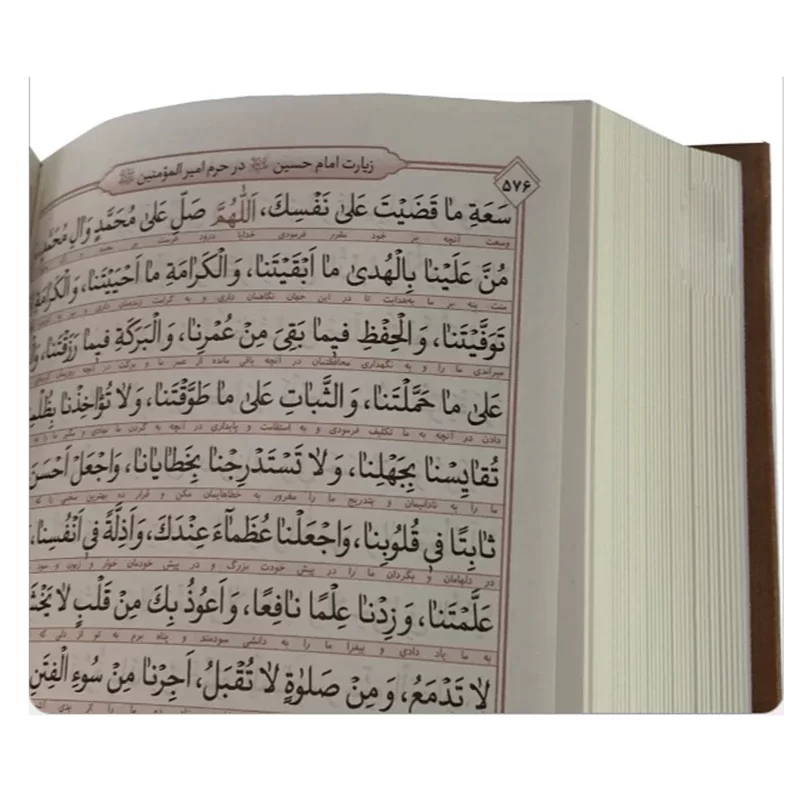 ۵۷۶
زیارت امام حسین در حرم امیر المؤمنین
سَعَةِ مٰا قَضَيْتَ عَلىٰ نَفْسِكَ، اَللّٰهُمَّ صَلِّ عَلىٰ مُحَمَّدٍ وَاٰلِ مُحَمَّدٍ
وسعت آنچه بر خود مقرر فرمودی خدایا درود فرست بر محمد و آل
مُنَّ عَلَيْنٰا بِالْهُدىٰ مٰا اَبْقَيْتَنٰا، وَالْكَرٰامَةِ مٰا اَحْيَيْتَنٰا، وَالْكَرٰامَةِ
منت بنه بر ما به‌هدایت تا در این جهان نگاهمان داری و به کرامت زنده‌مان داری و نیز به
تَوَفَّيْتَنٰا، وَالْحِفْظِ فيمٰا بَقِىَ مِنْ عُمْرِنٰا، وَالْبَرَكَةِ فيمٰا رَزَقْتَنٰا،
میراندی ما را و به نگهداری محافظتمان در آنچه باقی مانده از عمر ما و برکت در آنچه روزیمان
عَلىٰ مٰا حَمَّلْتَنٰا، وَالثَّبٰاتِ عَلىٰ مٰا طَوَّقْتَنٰا، وَلٰا تُؤٰاخِذْنٰا بِظُلْمِنٰا
دادن در آنچه به ما تکلیف فرمودی و به استقامت و پایداری در آنچه به گردن ما نهادی و مگیر ما را به
تُقٰايِسْنٰا بِجَهْلِنٰا، وَلٰا تَسْتَدْرِجْنٰا بِخَطٰايٰانٰا، وَاجْعَلْ اَحْسَنَ
ما را به نادانیمان و بتدریج ما را مغرور به خطاهایمان مکن و قرار ده بهترین سخنی را که
ثٰابِتًا فى قُلُوبِنٰا، وَاجْعَلْنٰا عُظَمٰاءَ عِنْدَكَ، وَاَذِلَّةً فى اَنْفُسِنٰا،
در دلهامان و بگردان ما را در پیش خودت بزرگ و در پیش خودمان خوار و زبون و سود
عَلَّمْتَنٰا، وَزِدْنٰا عِلْمًا نٰافِعًا، وَاَعُوذُ بِكَ مِنْ قَلْبٍ لٰا يَخْشَعُ
به ما یاد دادی و بیفزا ما را به دانشی سودمند و پناه برم به تو از دلی که
لٰا تَدْمَعُ، وَمِنْ صَلوٰةٍ لٰا تُقْبَلُ، اَجِرْنٰا مِنْ سُوءِ الْفِتَنِ